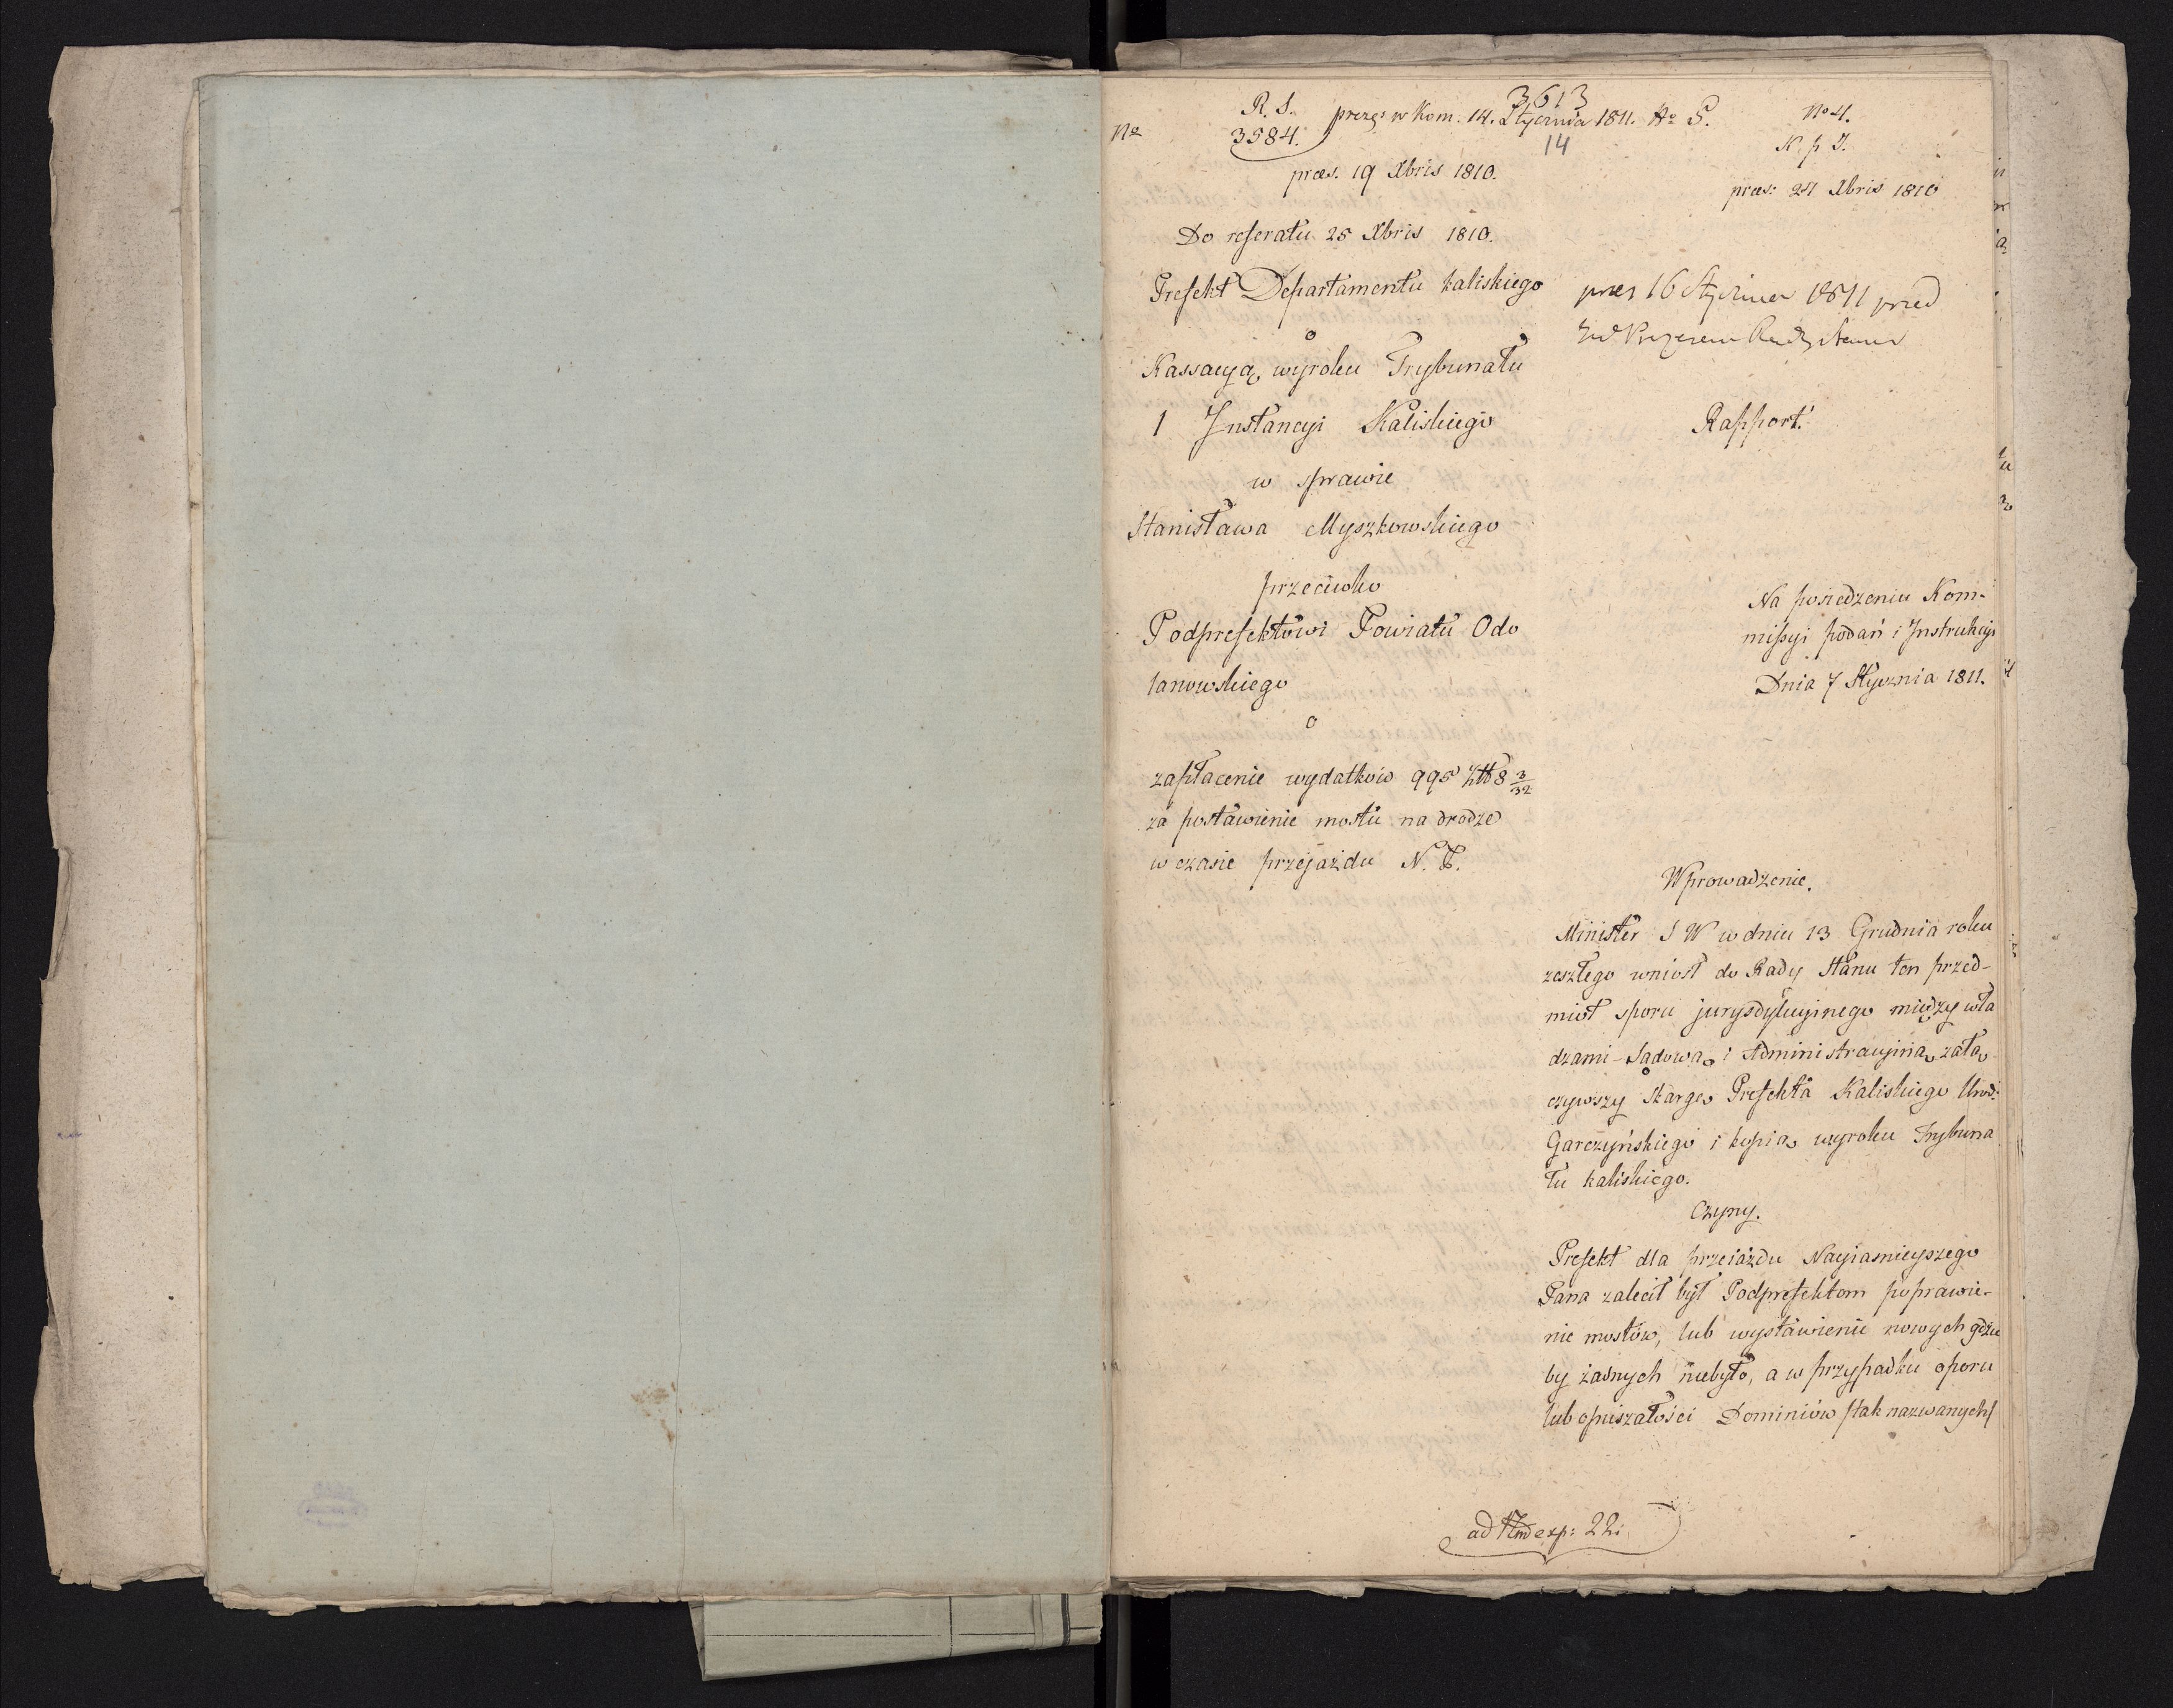 3613
R. S. prezs: w Kom. 14. Stycznia 1811. No 5. No 4.
No 3584. 14 K. p J.
præs. 19 Xbris 1810.
præs: 21 Xbris 1810
Do referatu 25 Xbris 1810.
Prefekt Departamentu kaliskiego
o
Kassacyą wyroku Trybunału
1 Jnstancyi Kaliskiego
w sprawie
Stanisława Myszkowskiego
przeciwko
Podprefektowi Powiatu Odo
lanowskiego
o
zapłacenie wydatków 995 Złt 8 3/32
za postawienie mostu na drodze
w czasie przejazdu N. P.
pres 16 Stycznia 1811 przed
Rady Stanu
Rapport.
Na posiedzeniu Kom-
missyi podań i Jnstrukcyi
Dnia 7 Stycznia 1811.
Wprowadzenie.
Minister S W w dniu 13 Grudnia roku
zeszłego wniosł do Rady Stanu ten przed-
miot sporu jurysdykcyinego między wła
dzami - Sądową i Administracyiną załą
czywszy skargę Prefekta Kaliskiego Urod:
Garczyńskiego i kopią wyroku Trybuna
łu kaliskiego.
Czyny.
Prefekt dla przeiazdu Nayiasnieyszego
Pana zalecił był Podprefektom poprawie-
nie mostów, lub wystawienie nowych gdzie
by żadnych niebyło, a w przypadku oporu
lub opieszałości Dominiów /tak nazwanych/
ad Num exp: 22.